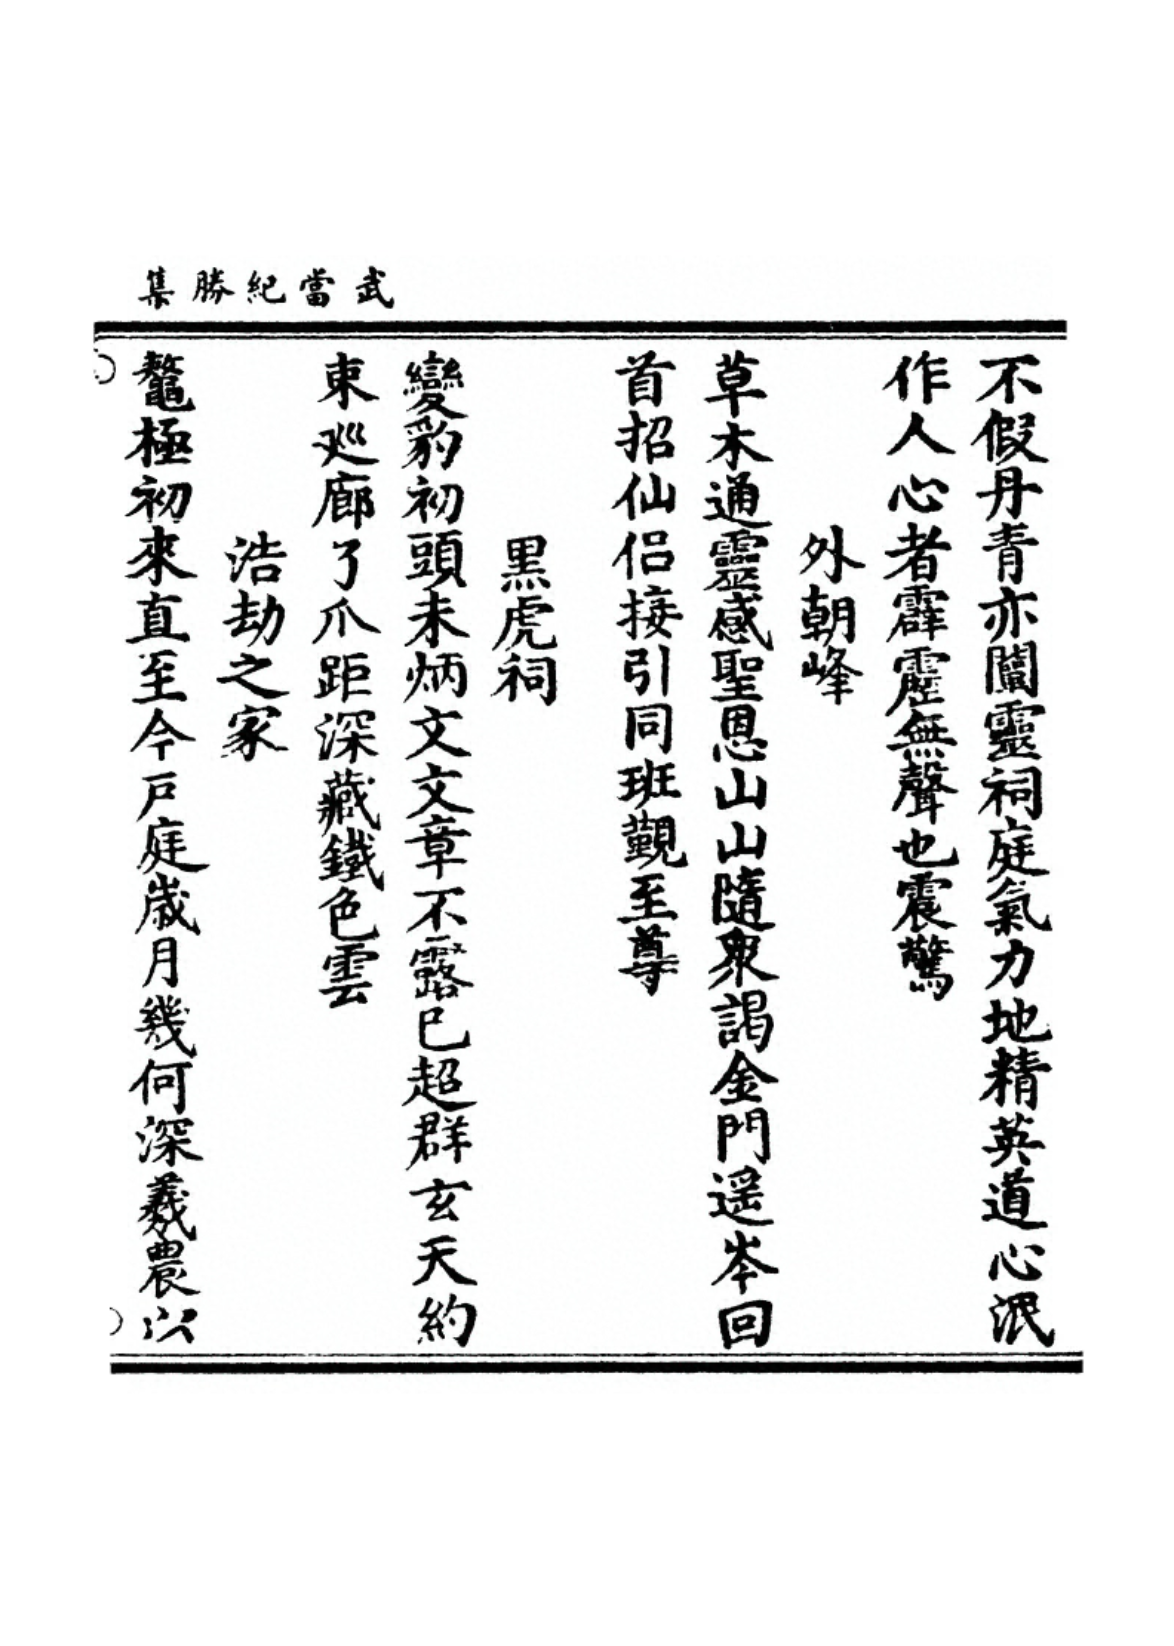 武當紀勝集
不假丹青亦闖靈祠庭氣力地精英道心泯
作人心者霹靂無聲也震驚
外朝峰
草木通靈感聖恩山山隨衆謁金門遥岑回
首招仙侣接引同班覲至尊
黒虎祠
變豹初頭未炳文文章不露已超群玄天約
束巡廊了爪距深藏鐵色雲
浩劫之家
鼇極初來直至今戸庭歲月幾何深羲農以